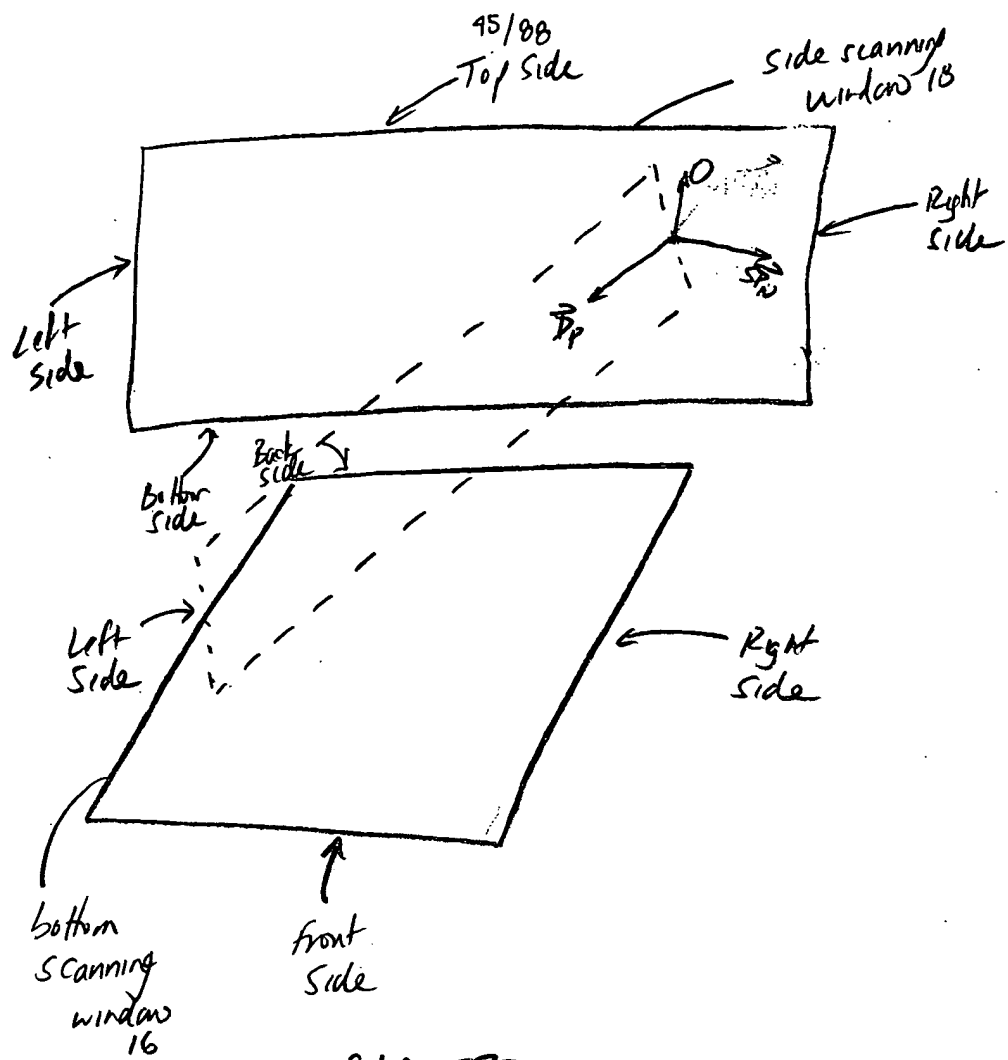 45/88
Top Side
Side scanning
window 18
O
Right
side
D⃗P
Left
side
Back
side
Bottom
side
Left
Side
Right
side
bottom
scanning
window
16
front
side